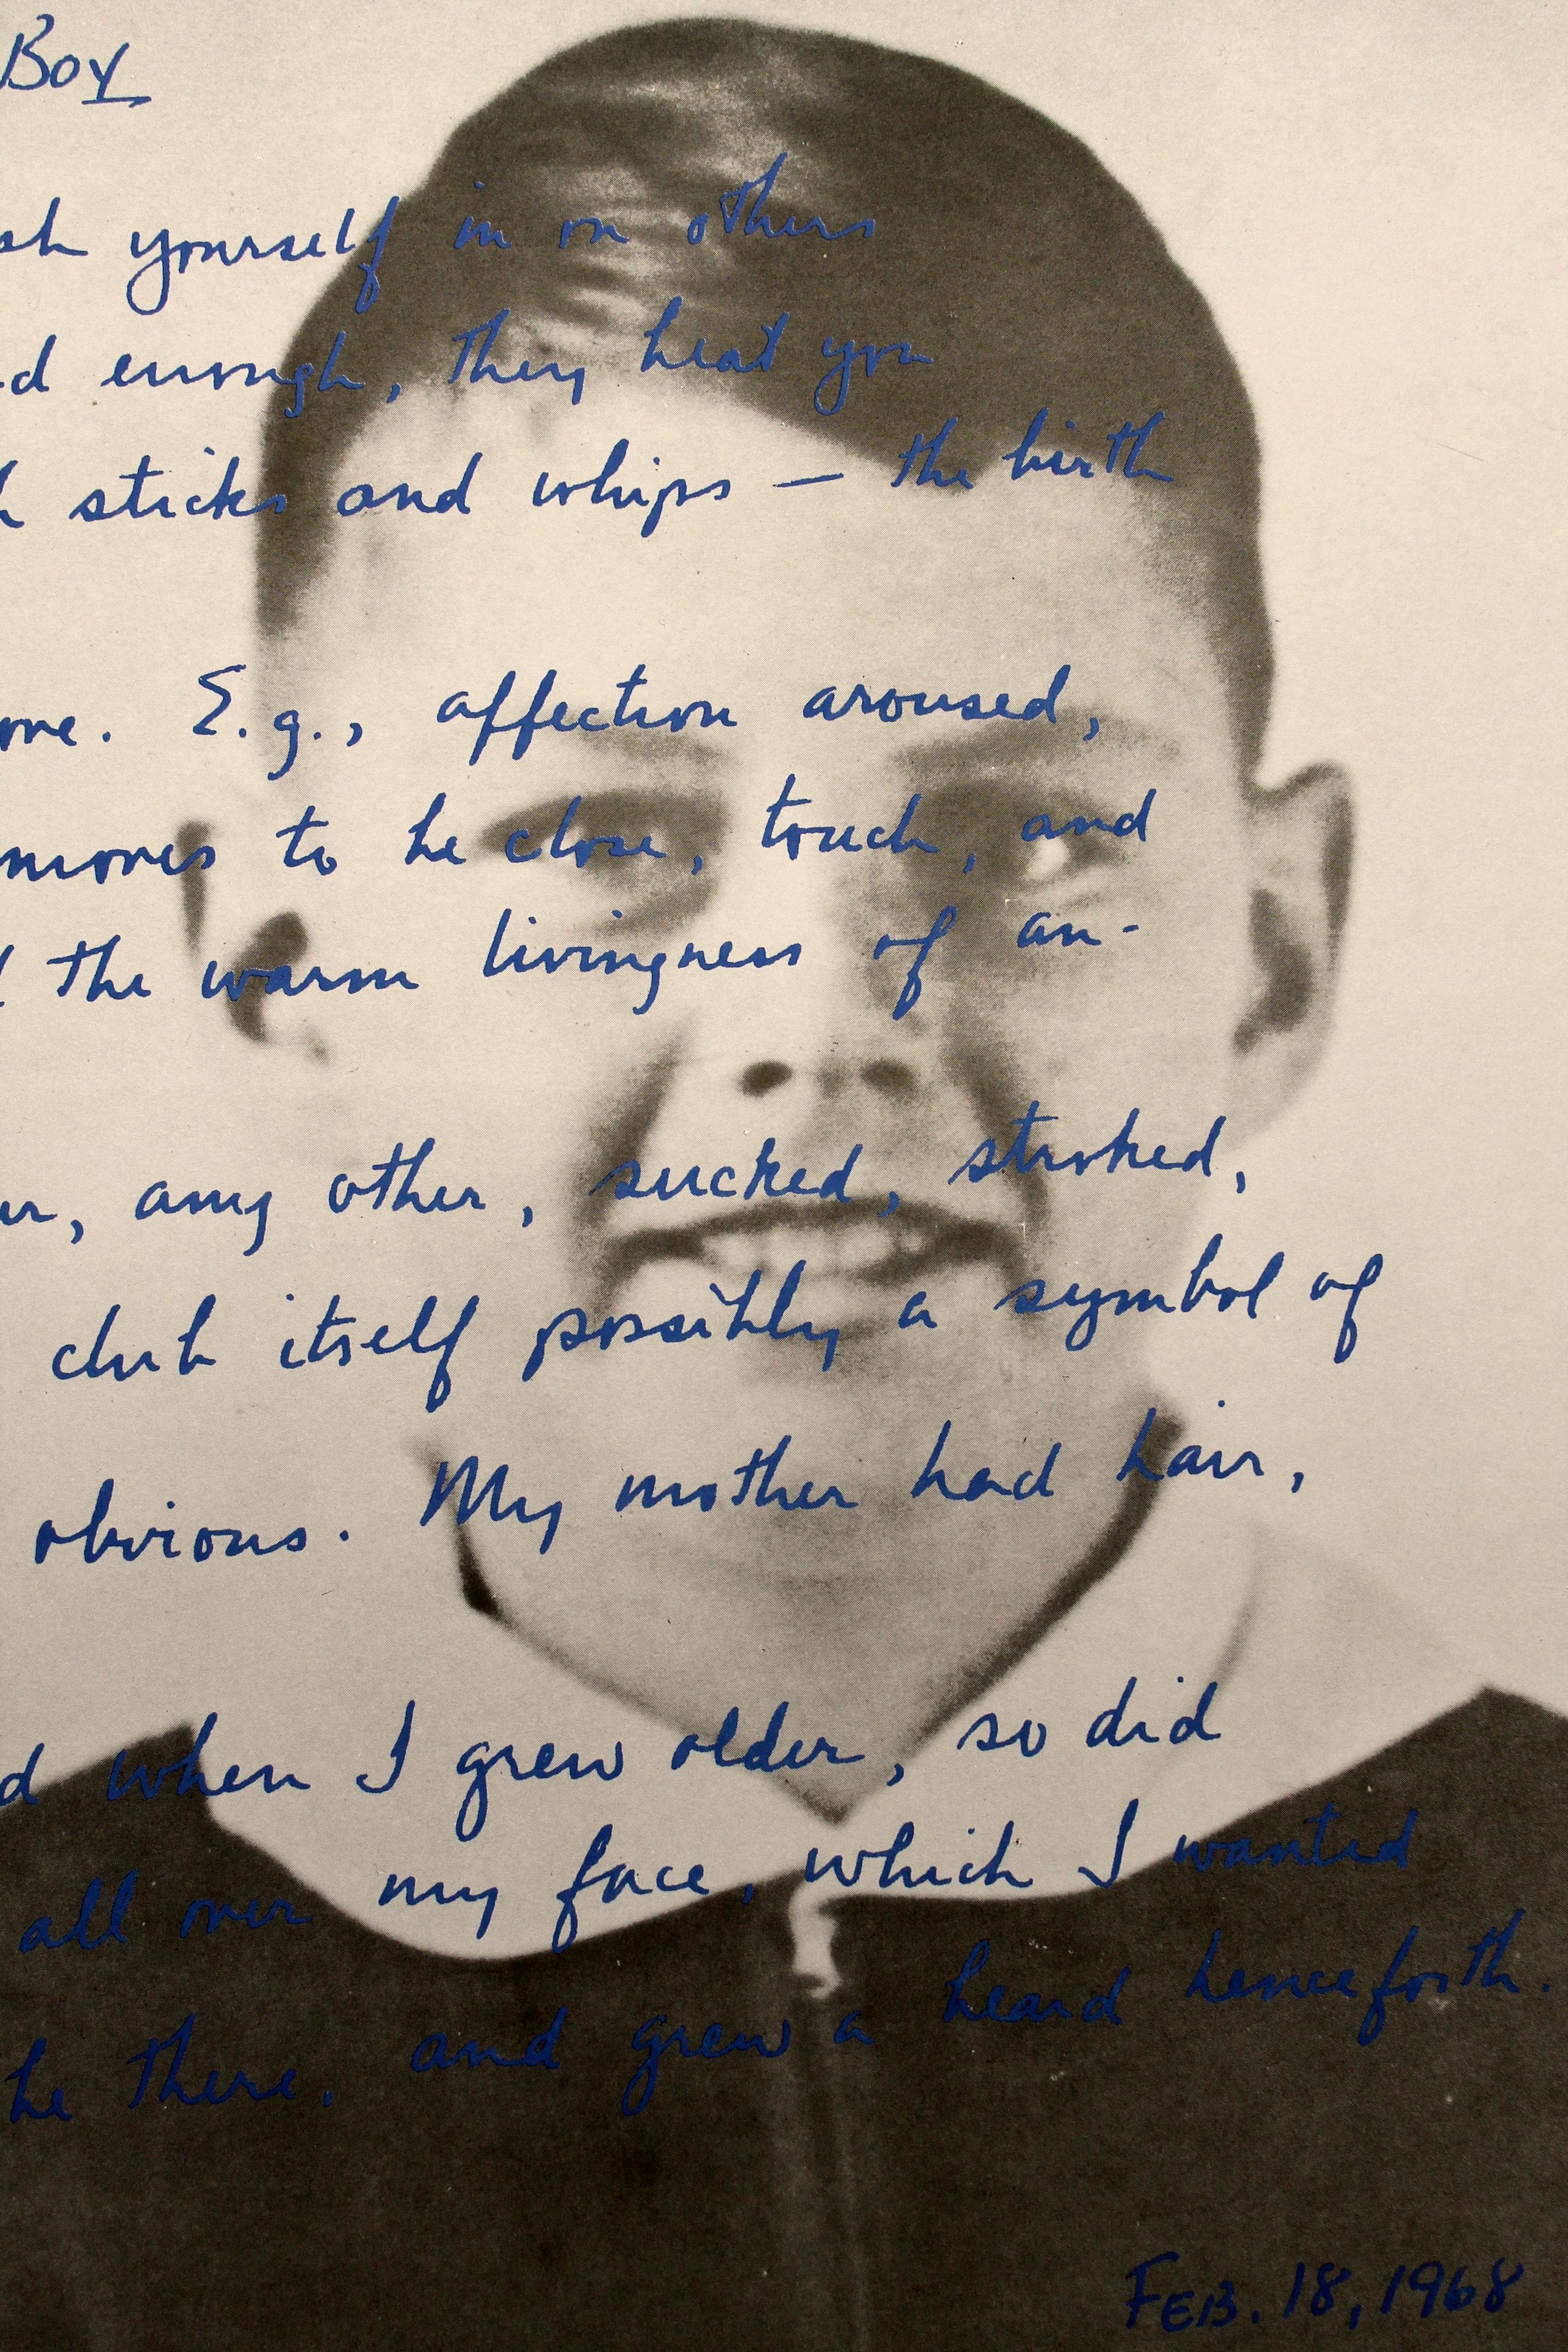 Boy
sh yourself in on others
d enough, they beat you
h sticks and whips — the birth
me. E.g., affection aroused,
moves to be close, touch, and
the warm livingness of an-
er, any other, sucked, stroked,
club itself possibly a symbol of
obvious. My mother had hair,
d when I grew older, so did
all over my face, which I wanted
be there, and grew a beard henceforth.
FEB. 18, 1968